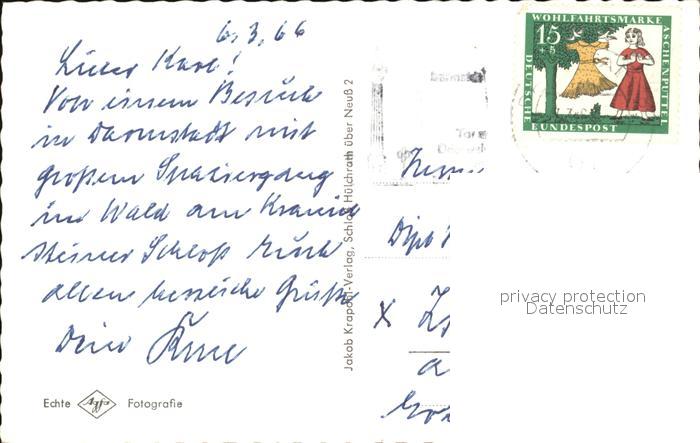 6.3.66
Lieber Karl!
Von einem Besuche
in Darmstadt mit
großem Spaziergang
im Wald am Kranich
steiner Schloß Euch
allen herzliche Grüße
Deine
Echte Agfa Fotografie
Jakob Krapohl-Verlag, Schloß Hülchrath über Neuß 2
WOHLFAHRTSMARKE
ASCHENPUTTEL
15
+5
DEUTSCHE
BUNDESPOST
Herrn
Dipl
X
privacy protection
Datenschutz